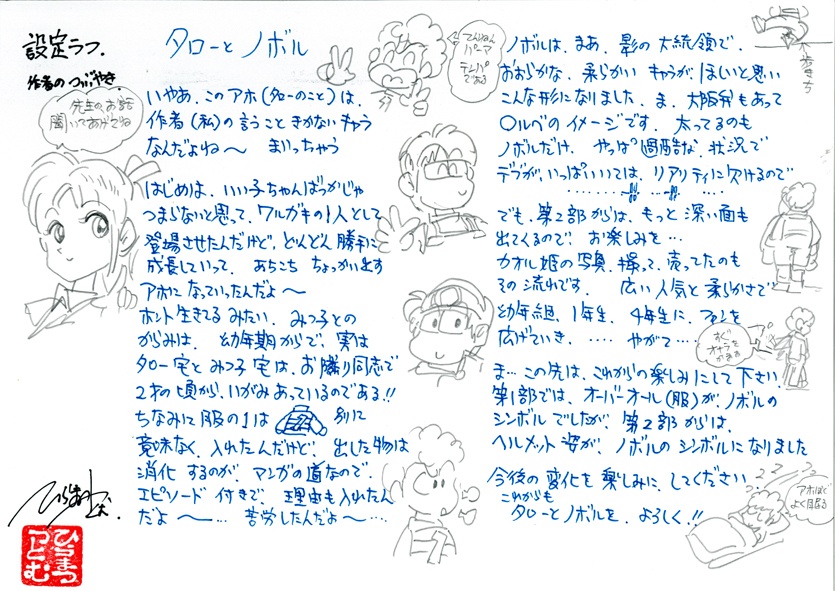 設定ラフ.
作者のつぶやき.
先生のお話
聞いてあげてね
タローと ノボル
いやあ、このアホ(タローのこと)は、
作者(私)の言うこと きかないキャラ
なんだよね〜 まいっちゃう
はじめは、いい子ちゃんばっかじゃ
つまらないと思って、ワルガキの1人として
登場させたんだけど、どんどん勝手に
成長していって、あちこち ちょっかい出す
アホに なっていったんだよ〜
ホント生きてるみたい、みつ子との
からみは、幼年期からで、実は
タロー宅とみつ子宅は、お隣り同志で
2才の頃から、いがみあっているのである!!
ちなみに服の1は 別に
意味なく、入れたんだけど、出した物は
消化するのが、マンガの道なので、
エピソード付きで、理由も入れたん
だよ〜…、苦労したんだよ〜…
ひらまつ
つとむ
てんねん
パーマ
テンパ
である
ノボルは、まあ、影の大統領で、
おおらかな、柔らかいキャラが、ほしいと思い
こんな形になりました、ま、大阪弁もあって
〇ルベのイメージです、太ってるのも
ノボルだけ、やっぱ過酷な、状況で
デブが、いっぱいいては、リアリティに欠けるので
でも、第2部からは、もっと深い面も
出てくるので、お楽しみを…
カオル姫の写真、撮って、売ってたのも
その流れです、広い人気と柔らかさで
幼年組、1年生、4年生に、ファンを
広げていき、....やがて…
すぐ
オナラを
かます
ま…この先は、これからの楽しみにして下さい、
第1部では、オーバーオール(服)が、ノボルの
シンボルでしたが、第2部からは、
ヘルメット姿が、ノボルのシンボルになりました
今後の変化を楽しみに、してください
これからも
タローとノボルを、よろしく.!!
アホほど
よく眠る